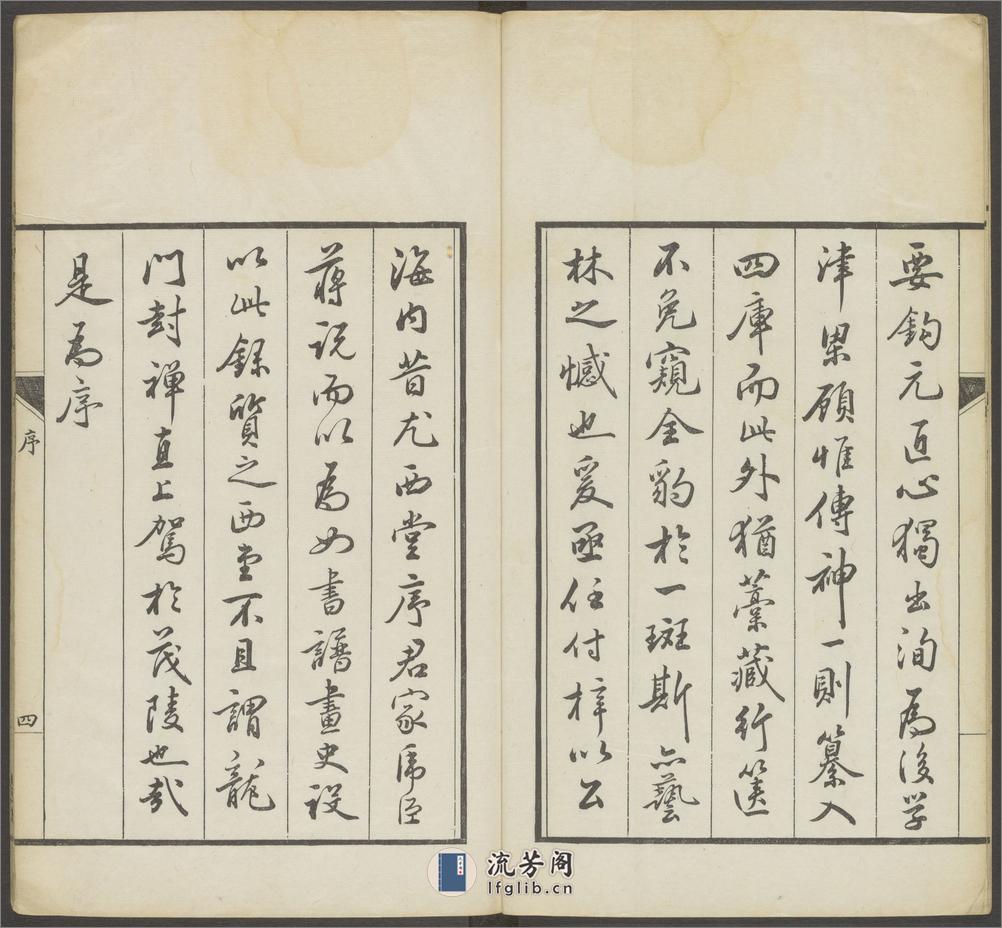 要鈎元匠心獨出洵為後学
津梁顧惟傳神一則纂入
四庫而此外猶藁藏行篋
不免窺全豹於一斑斯亦藝
林之憾也爰亟任付梓以公
海内昔尤西堂序君家虎臣
蔣説而以為如書譜畫史設
以此録質之西堂不且謂龍
門封禪直上駕於茂陵也哉
是為序
序
四
流芳阁
lfglib.cn